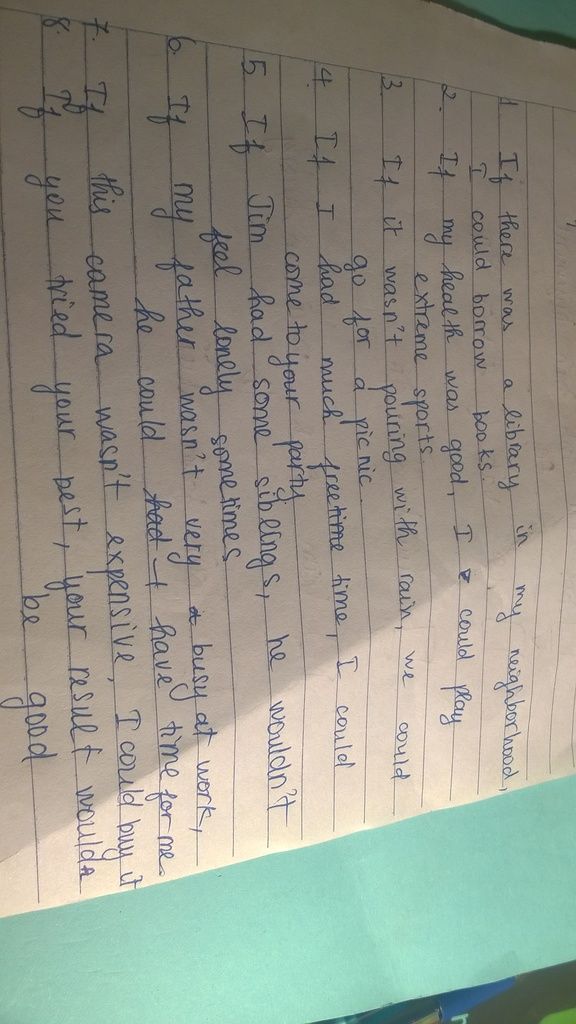 1. If there was a library in my neighborhood,
I could borrow books.
2. If my health was good, I could play
extreme sports.
3. If it wasn't pouring with rain, we could
go for a picnic.
4. If I had much freetime time, I could
come to your party
5 If Jim had some sibeings, he wouldn't
feel lonely sometimes
6. If my father wasn't very busy at work,
he could have time for me.
7. If this camera wasn't expensive, I could buy it
8. If you tried your best, your result would
be good